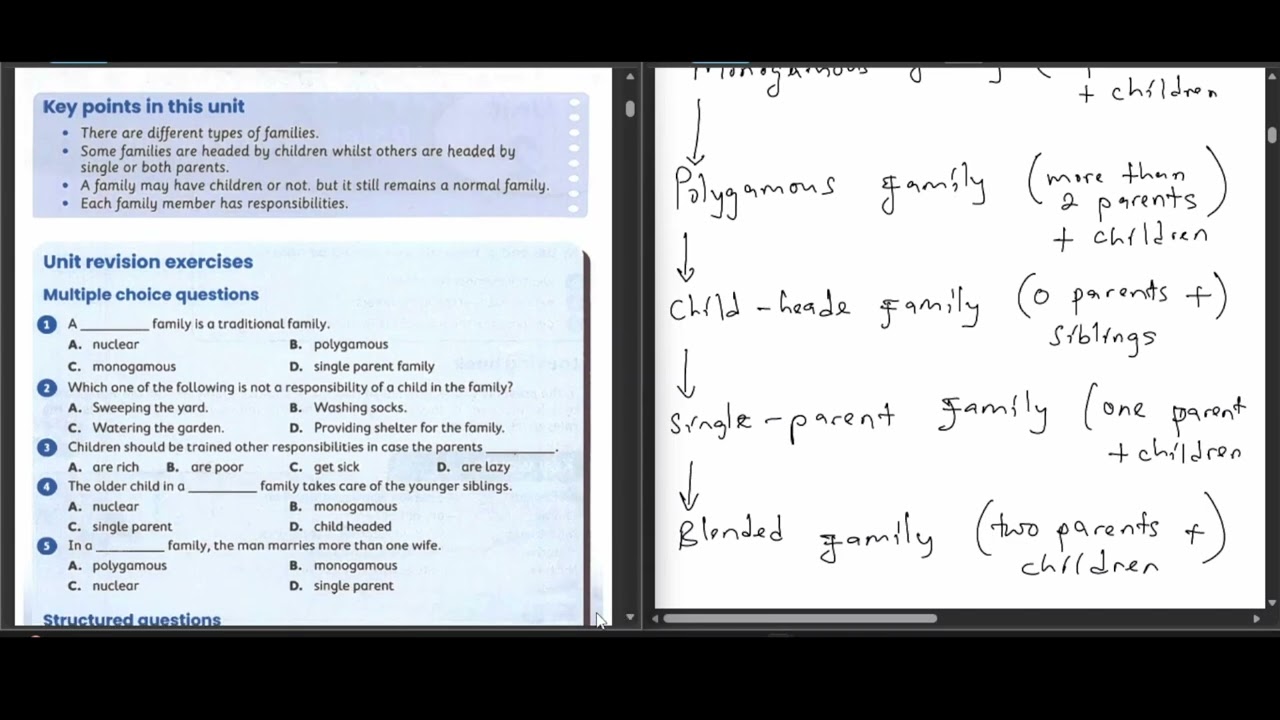 Key points in this unit
• There are different types of families.
• Some families are headed by children whilst others are headed by
single or both parents.
• A family may have children or not. but it still remains a normal family.
• Each family member has responsibilities.
Unit revision exercises
Multiple choice questions
1 A __________ family is a traditional family.
A. nuclear B. polygamous
C. monogamous D. single parent family
2 Which one of the following is not a responsibility of a child in the family?
A. Sweeping the yard. B. Washing socks.
C. Watering the garden. D. Providing shelter for the family.
3 Children should be trained other responsibilities in case the parents __________.
A. are rich B. are poor C. get sick D. are lazy
4 The older child in a __________ family takes care of the younger siblings.
A. nuclear B. monogamous
C. single parent D. child headed
5 In a __________ family, the man marries more than one wife.
A. polygamous B. monogamous
C. nuclear D. single parent
Structured questions
Monogamous
+ children
Polygamous family (more than
2 parents)
+ children
Child-heade family (0 parents +)
siblings
Single-parent family (one parent
+ children
Blended family (two parents +)
children